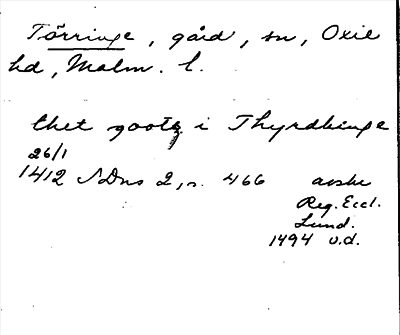 Törringe, gård, sn, Oxie
hd, Malm. l.
thet gootz i Thyrdhinge
26/1
1412 SDns 2, s. 466 avskr
Reg. Eccl.
Lund.
1494 o.d.